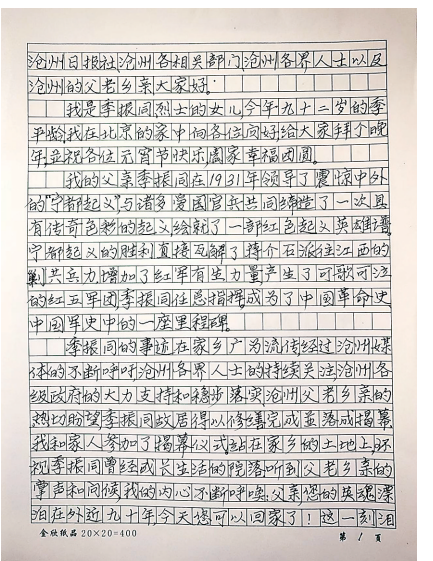 沧州日报社,沧州各相关部门,沧州各界人士以及
沧州的父老乡亲大家好:
我是季振同烈士的女儿,今年九十二岁的季
平龄,我在北京的家中向各位问好,给大家拜个晚
年,并祝各位元宵节快乐,阖家幸福团圆。
我的父亲季振同在1931年领导了震惊中外
的"宁都起义",与诸多爱国官兵共同缔造了一次具
有传奇色彩的起义,绘就了一部红色起义英雄谱。
宁都起义的胜利直接瓦解了蒋介石派往江西的
剿共兵力,增加了红军有生力量,产生了可歌可泣
的红五军团,季振同任总指挥,成为了中国革命史,
中国军史中的一座里程碑。
季振同的事迹在家乡广为流传,经过沧州媒
体的不断呼吁,沧州各界人士的持续关注,沧州各
级政府的大力支持和稳步落实,沧州父老乡亲的
热切盼望,季振同故居得以修缮完成并落成揭幕,
我和家人参加了揭幕仪式,站在家乡的土地上,环
视季振同曾经成长生活的院落,听到父老乡亲的
掌声和问候,我的内心不断呼唤,父亲,您的英魂漂
泊在外近九十年,今天您可以回家了!这一刻,泪
金欣纸品 20×20=400 第 1 頁